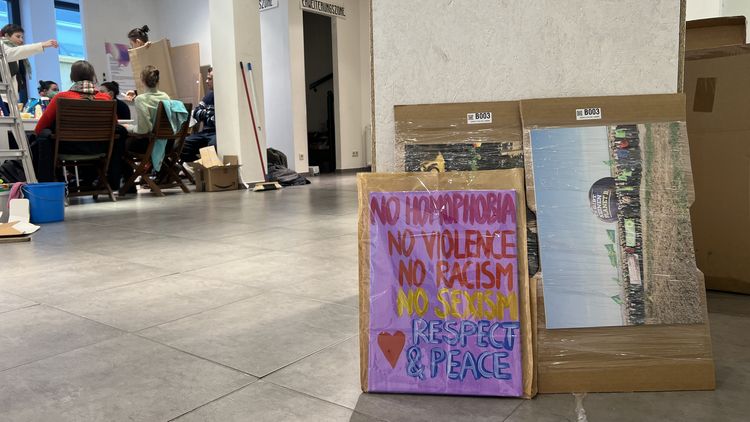 ERWEITERUNGSZONE
B003
B003
NO HOMOPHOBIA
NO VIOLENCE
NO RACISM
NO SEXISM
RESPECT
& PEACE